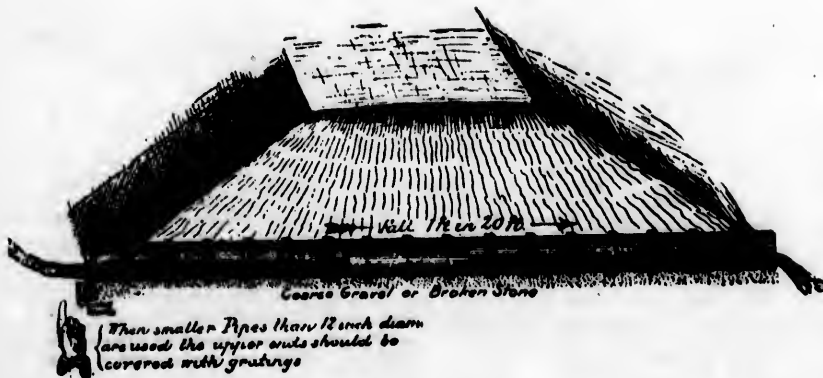 Fall 1 ft in 20 ft.
Coarse Gravel or Broken Stone
When smaller Pipes than 12 inch diam.
are used the upper ends should be
covered with gratings